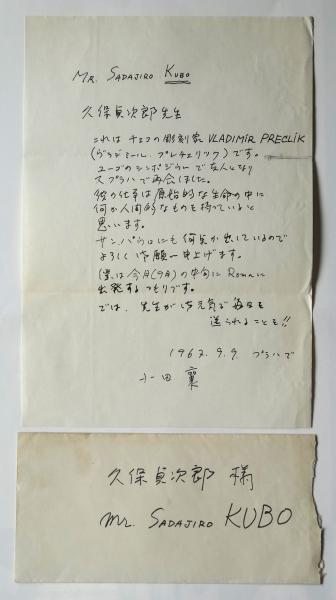 MR. SADAJIRO KUBO
久保貞次郎先生
これは チェコの彫刻家 VLADIMIR PRECLIK
(ヴラジミール. プレチェリック) です。
ユーゴのシンポジウームで友人となり
スプラハで再会しました。
彼の仕事は原始的な生命の中に
何か人間的なものを持っていると
思います。
サンパウロにも何点か出しているので
よろしく御願い申上げます。
(僕は今月(9月)の中旬に Romaに
出発するつもりです。
では、先生が御元気で毎日を
送られることを!!
1967. 9. 9. プラハで
小田 襄
久保貞次郎 様
Mr. SADAJIRO KUBO